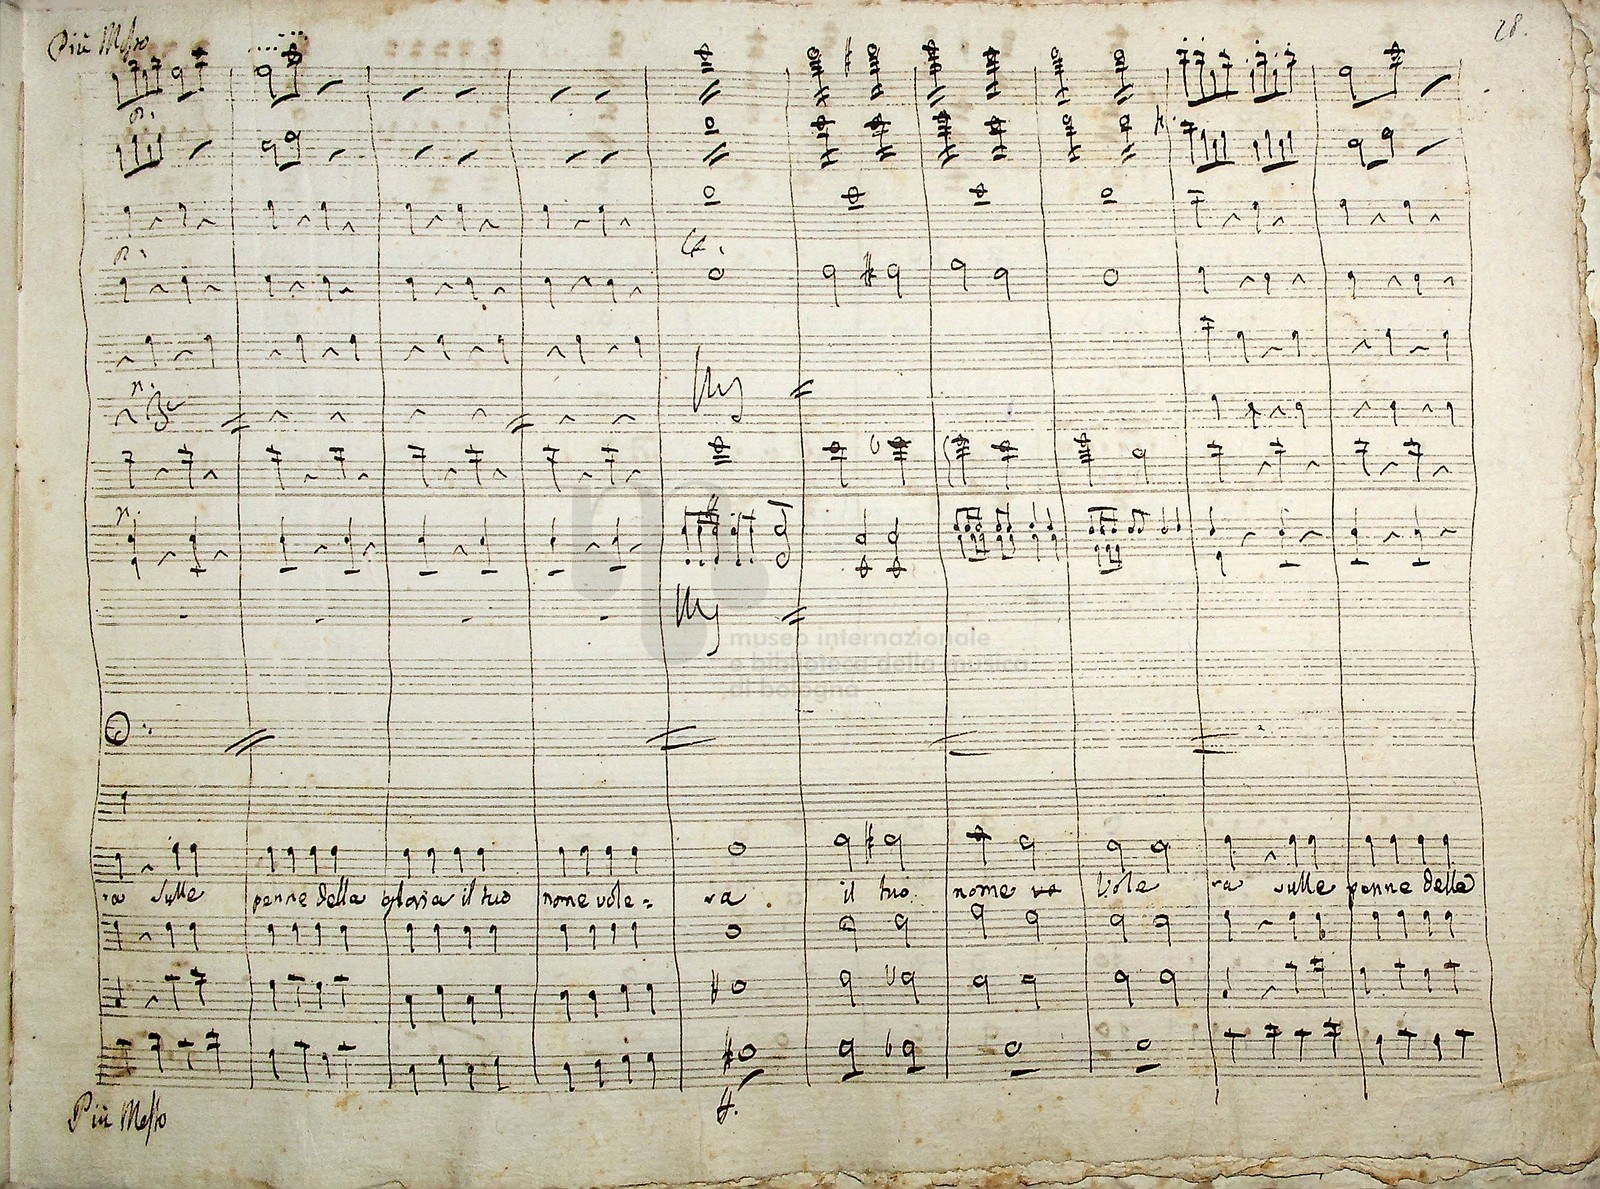 28.
Più Mosso
P.
P.
ff.
museo internazionale
e biblioteca della musica
di bologna
ra sulle penne della gloria il tuo nome vole= ra. il tuo nome vole ra sulle penne della
ff.
Più Mosso